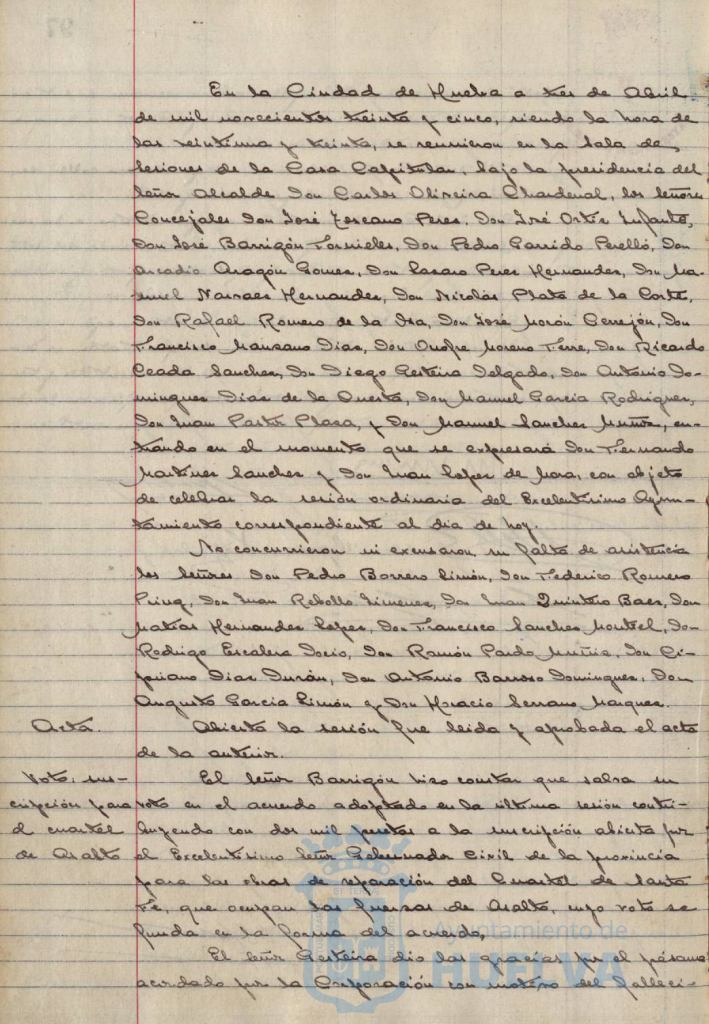 En la Ciudad de Huelva a tres de Abril
de mil novecientos treinta y cinco, siendo la hora de
las veintiuna y treinta, se reunieron en la Sala de
Sesiones de la Casa Capitular, bajo la presidencia del
Señor Alcalde Don Carlos Oliveira Chardenal, los Señores
Concejales Don José Toscano Peres, Don José Ortiz Infante,
Don José Barrigón Fornieles, Don Pedro Garrido Perelló, Don
Arcadio Aragón Gomes, Don Lasaro Peres Hernandes, Don Ma-
nuel Narvaes Hernandes, Don Nicolás Plata de la Corte,
Don Rafael Romero de la Isa, Don José Morón Cerrejón, Don
Francisco Mansano Dias, Don Onofre Moreno Ferre, Don Ricardo
Ceada Sanches, Don Diego Gesteira Delgado, Don Antonio Do-
mingues Dias de la Questa, Don Manuel Garcia Rodrigues,
Don Juan Pastor Plasa, y Don Manuel Sanches Muñiz, en-
trando en el momento que se expresará Don Fernando
Martines Sanches y Don Juan Lopes de Mora, con objeto
de celebrar la sesión ordinaria del Excelentisimo Ayun-
tamiento correspondiente al dia de hoy.
No concurrieron ni excusaron su falta de asistencia
los Señores Don Pedro Borrero Limón, Don Federico Romero
Don Juan Rebollo Jimenes, Don Juan Quintero Baes, Don
Matias Hernandes Lopes, Don Francisco Sanches Montiel, Don
Rodrigo Escalera Don Ramón Pardo Muñiz, Don Ci-
priano Dias Durán, Don Antonio Barroso Domingues, Don
Augusto Garcia Limón y Don Horacio Serrano Marques.
Acta. Abierta la sesión fue leida y aprobada el acta
de la anterior.
Voto, sus- El Señor Barrigón hizo constar que salva su
cripción para voto en el acuerdo adoptado en la última sesión contri-
el cuartel buyendo con dos mil pesetas a la suscripción abierta por
de Asalto el Excelentisimo Señor Gobernador Civil de la provincia
para las obras de reparación del Cuartel de Santa
Fe, que ocupan las fuersas de Asalto, cuyo voto se
funda en la forma del acuerdo.
El Señor Gesteira dio las gracias por el pésame
acordado por la Corporación con motivo del falleci-
Ayuntamiento de
HUELVA